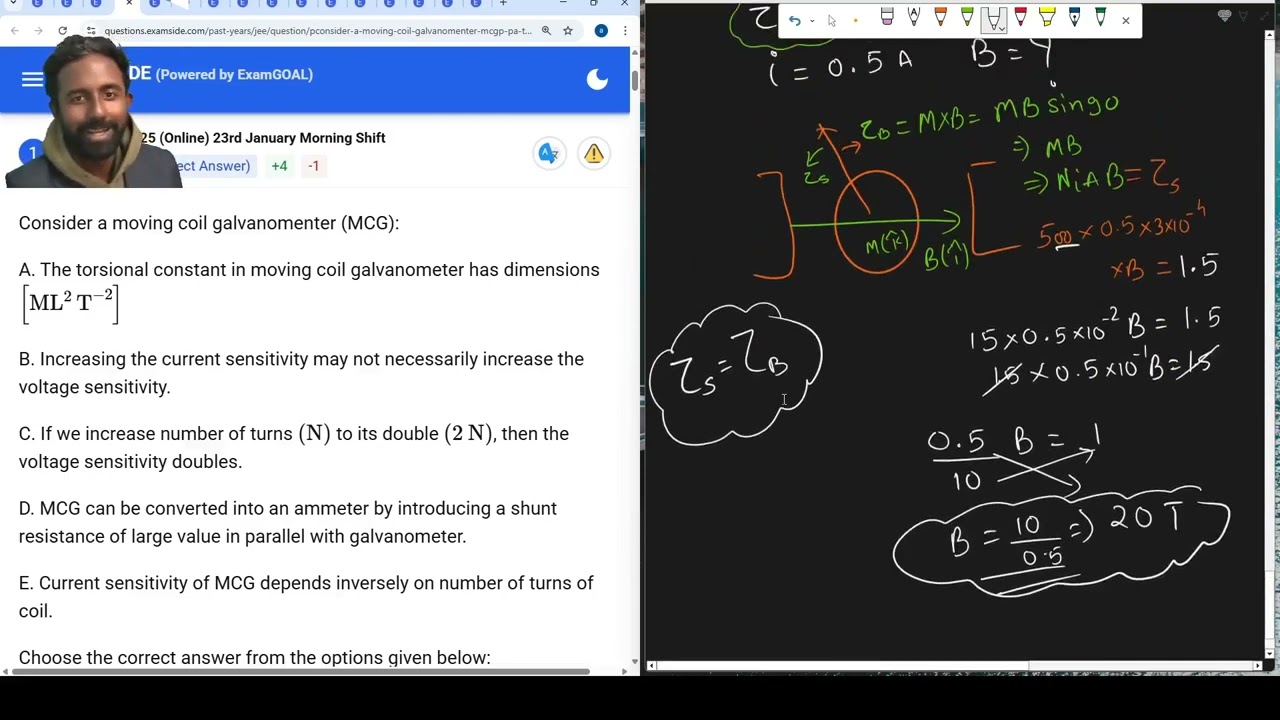 questions.examside.com/past-years/jee/question/pconsider-a-moving-coil-galvanomenter-mcgp-pa-t...
DE (Powered by ExamGOAL)
1
25 (Online) 23rd January Morning Shift
ect Answer)
+4
-1
Consider a moving coil galvanomenter (MCG):
A. The torsional constant in moving coil galvanometer has dimensions
[ML² T⁻²]
B. Increasing the current sensitivity may not necessarily increase the
voltage sensitivity.
C. If we increase number of turns (N) to its double (2 N), then the
voltage sensitivity doubles.
D. MCG can be converted into an ammeter by introducing a shunt
resistance of large value in parallel with galvanometer.
E. Current sensitivity of MCG depends inversely on number of turns of
coil.
Choose the correct answer from the options given below:
i = 0.5 A B = ?
τB = M×B = MB sin90
⇒ MB
⇒ NiAB = τs
τs
M(k̂)
B(î)
500 × 0.5 × 3×10⁻⁴
×B = 1.5
15 × 0.5 × 10⁻² B = 1.5
15 × 0.5 × 10⁻¹ B = 15
τs = τB
0.5 B = 1
10
B = 10/0.5 ⇒ 20 T